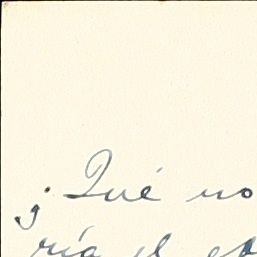 ¿Qué no
ría el